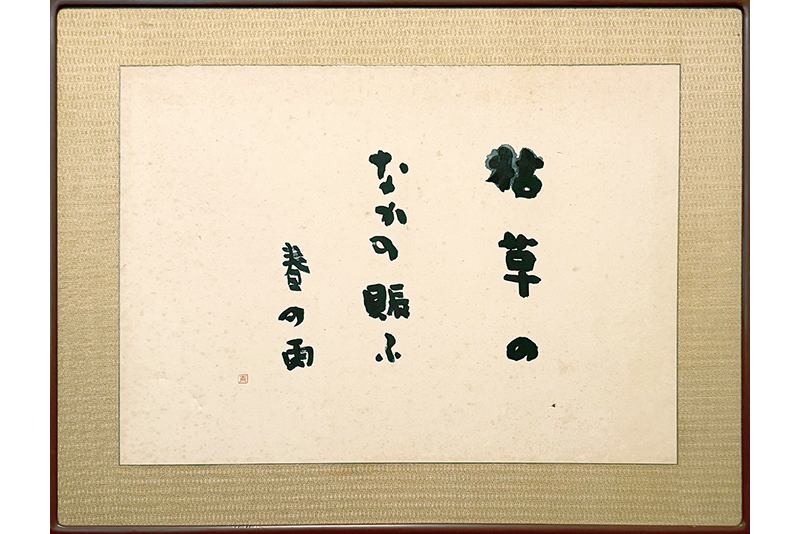 枯草の
なかの賑ふ
春の雨